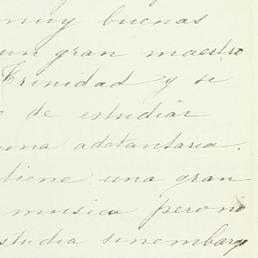 muy buenas
un gran maestro
Trinidad y se
de estudiár
una adelantaria.
tiene una gran
musica pero ni
studia sinembarg